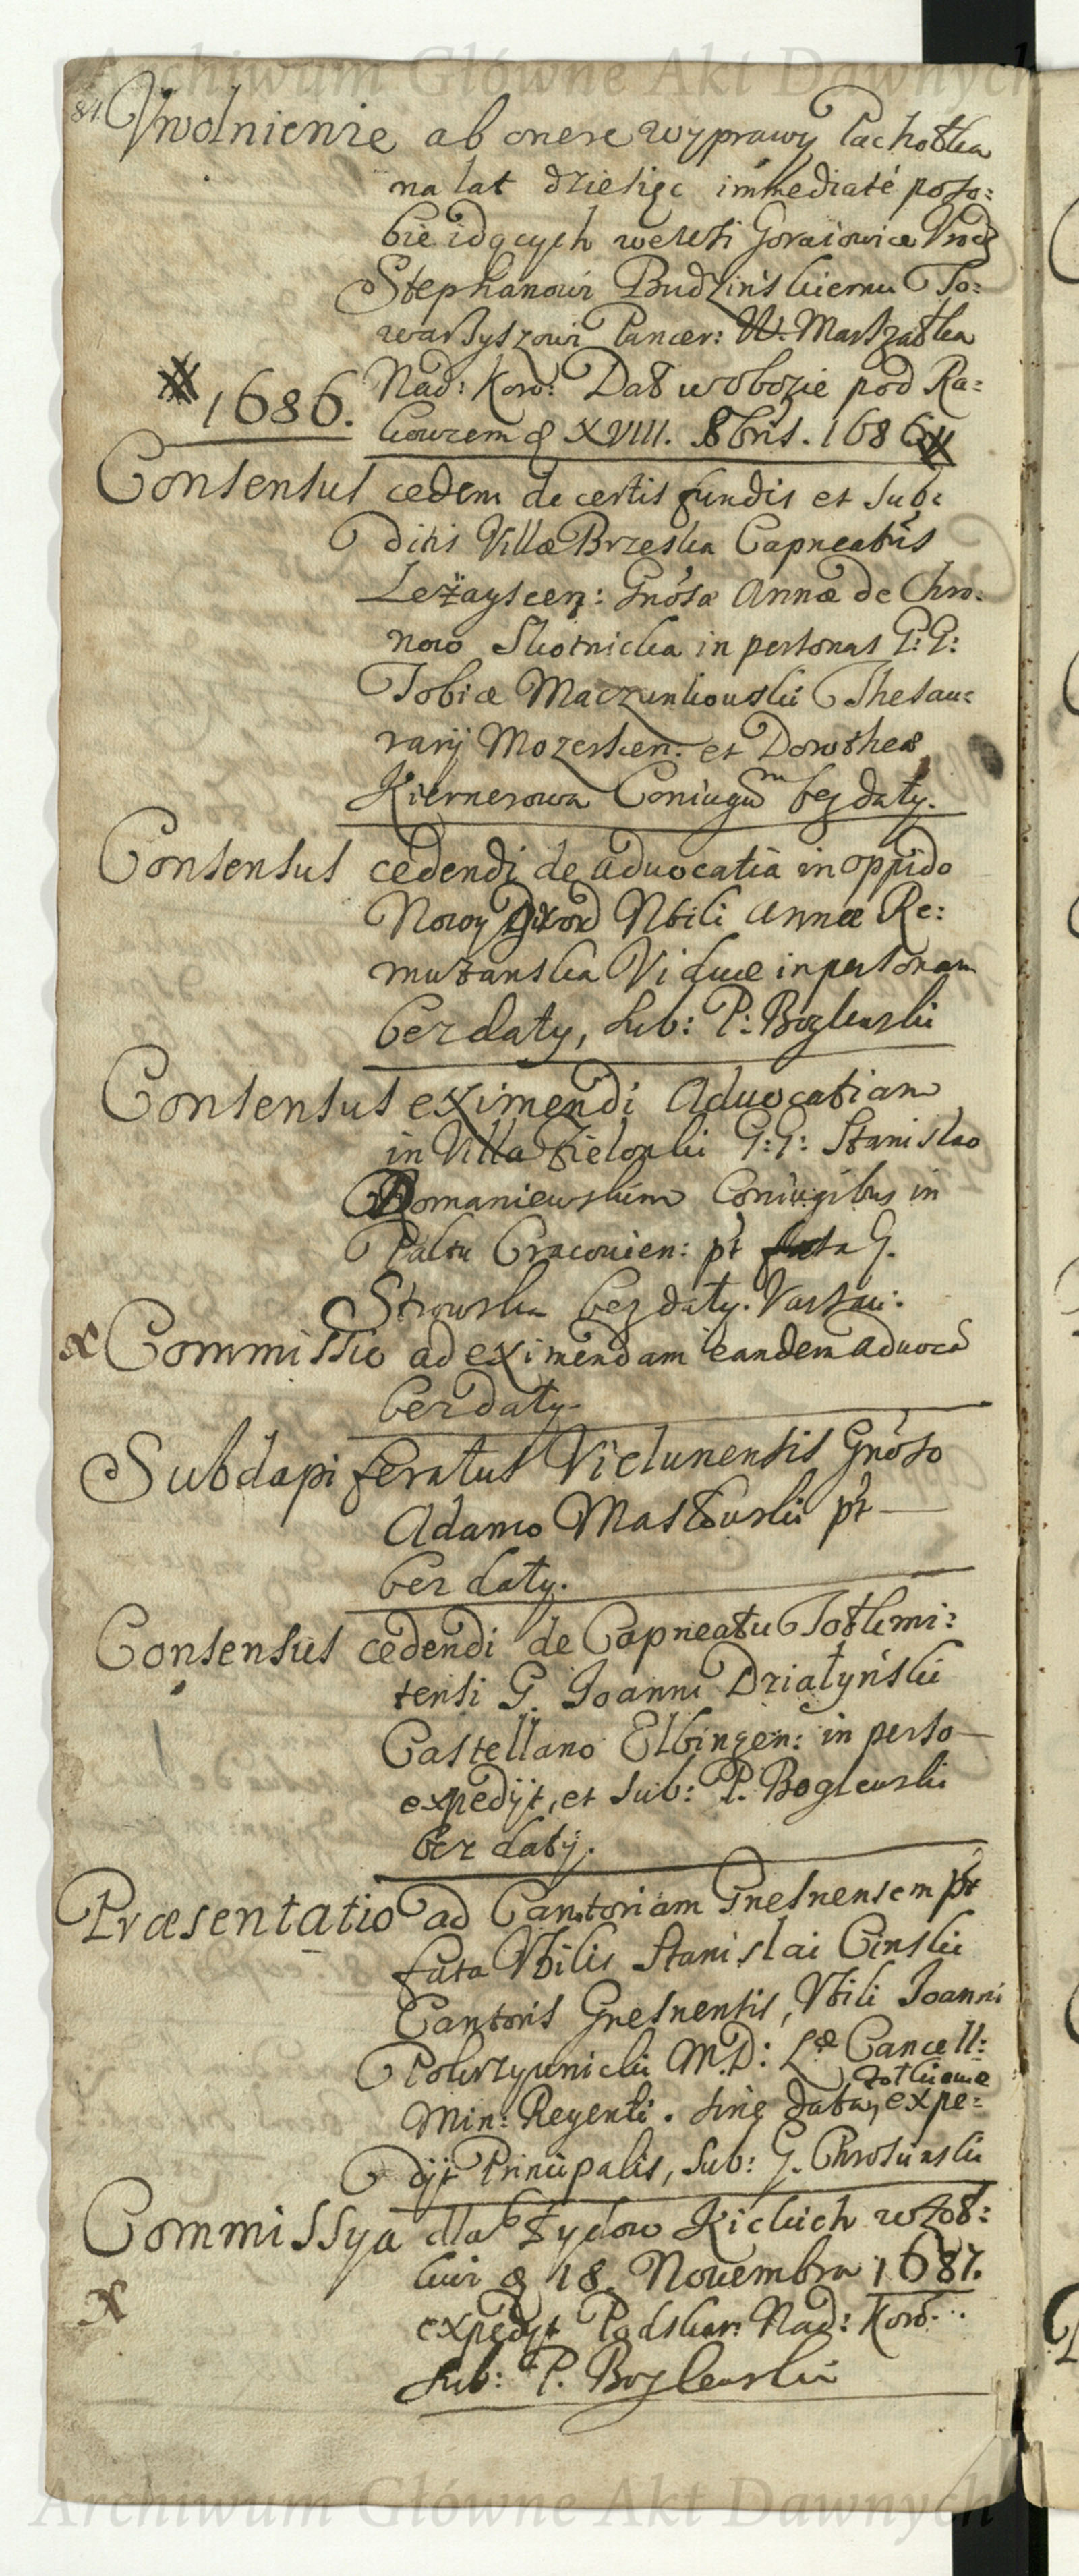 Archiwum Główne Akt Dawnych
84.
Vwolnienie ab onere wyprawy Pachołka
na lat dziesięc immediatè poso:
bie idących wewsi Goraiowice Vrodz
Stephanowi Budzinskiemu To:
warzyszowi Pancer: W. Marszałka
Nad: Koro: Dat w obozie pod Ra:
1686. kowcem d XVIII. 8bris. 1686
Consensus cedem de certis fundis et sub:
ditis Villæ Brzeska Capneatus
Leżayscen: Gnosa Annæ de Chro:
nowo Skotnicka in personas G: G:
Tobiæ Maczunkowski Thesau:
rarij Mozerscen: et Dorothea
Kiernerowa Coniugum bez daty.
Consensus cedendi de aduocatia in oppido
Nowy Nbili Annæ Re:
muzanska Viduæ in personam
bez daty, sub: P: Boglewski
Consensus eximendi Aduocatiam
in Villa Zielonki G: G: Stanislao
Romaniewskim Coniugibus in
Paltu Cracouien: pt fata G.
Strowska bez daty. Varsau:
x Commissio ad eximendam eandem aduoca
bez daty.
Subdapiferatus Vielunensis Gnoso
Adamo Masłowski pt
bez daty.
Consensus cedendi de Capneatu Tołkmi:
tensi G. Joanni Działyński
Castellano Elbingen: in perso
expedijt, et sub: P. Boglewski
bez daty.
Præsentatio ad Cantoriam Gnesnensem pst
fata Vbilis Stanislai Cinski
Cantoris Gnesnensis, Vbili Joanni
Pokrzywnicki M. D: L. Cancell:
Min: Regenti. sine data, expe:
dijt Principalis, sub: G. Chrosinski
Commissya dla Żydow Kickich w Żoł:
kwi d 18. Nouembra 1687.
x expedijt Podskar: Nad: Koro:
sub: P. Boglewski
Archiwum Główne Akt Dawnych